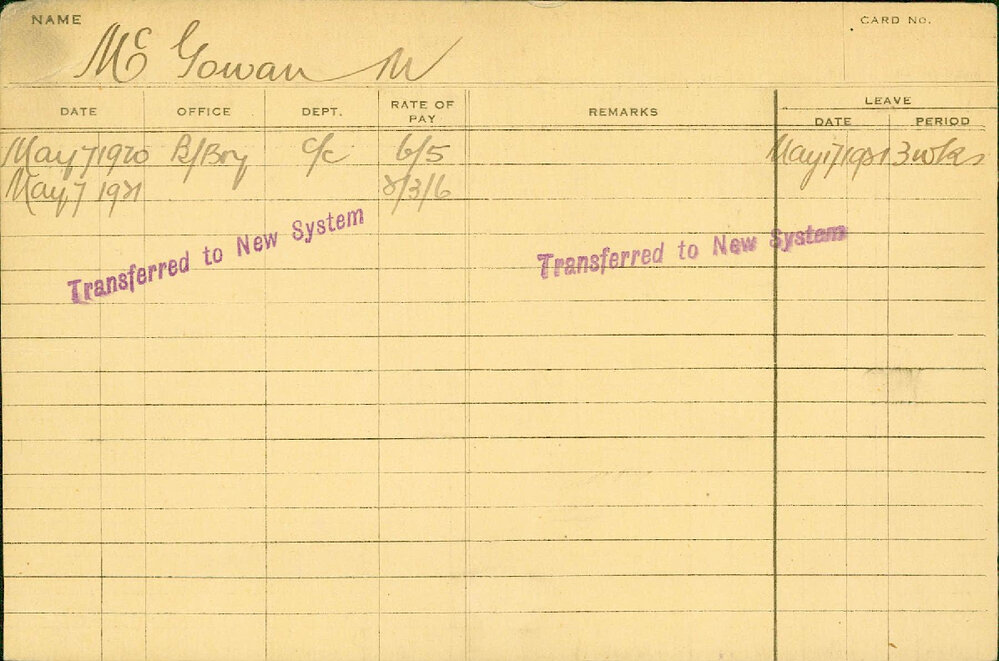 NAME CARD No.
Mc Gowan W
DATE OFFICE DEPT. RATE OF PAY REMARKS LEAVE
DATE PERIOD
May 7 1920 B/Boy C/C 6/5 May 17 1921 3 wks
May 7 1921 8/3/6
Transferred to New System Transferred to New System